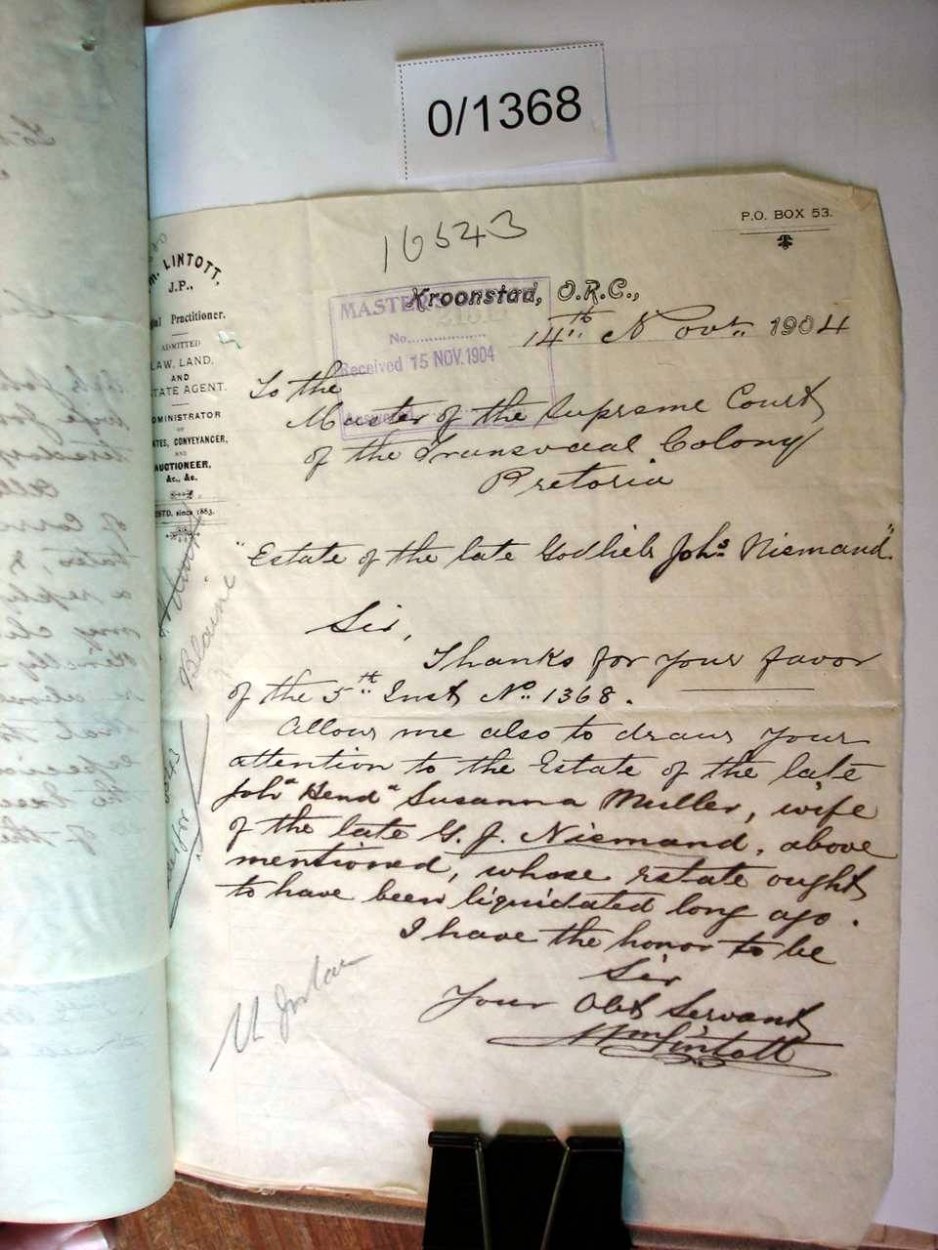 0/1368
16543
P.O. BOX 53.
LINTOTT,
J.P.,
Practitioner.
ADMITTED
LAW, LAND,
AND
ESTATE AGENT.
ADMINISTRATOR
OF
CONVEYANCER,
AND
AUCTIONEER,
&c., &c.
ESTD. since 1863.
Kroonstad, O.R.C.,
14th Novr. 1904
MASTER'S
No.
Received 15 NOV. 1904
To the
Master of the Supreme Court
of the Transvaal Colony
Pretoria
"Estate of the late Godlieb Johs Niemand"
Sir,
Thanks for your favor
of the 5th Inst No. 1368.
Allow me also to draw your
attention to the Estate of the late
Joha Henda Susanna Muller, wife
of the late G. J. Niemand, above
mentioned, whose estate ought
to have been liquidated long ago.
I have the honor to be
Sir
Your Obt Servant
Wm Lintott